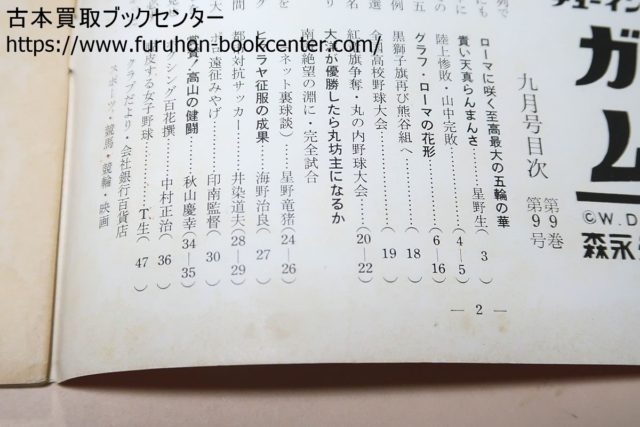 古本買取ブックセンター
https://www.furuhon-bookcenter.com/
チューイン
ガム
©W.D
森永
九月号目次 第9巻 第9号
ローマに咲く至高最大の五輪の華
貴い天真らんまんさ………星野生( 3 )
陸上惨敗・山中完敗………( 4—5 )
グラフ・ローマの花形………( 6—16 )
黒獅子旗再び熊谷組へ………( 18 )
全国高校野球大会………( 19 )
紅旗争奪・丸の内野球大会………( 20—22 )
が優勝したら丸坊主になるか
絶望の淵に・完全試合
ネット裏球談)………星野竜猪( 24—26 )
ヒマラヤ征服の成果………海野治良( 27 )
対抗サッカー………井染道夫( 28—29 )
遠征みやげ………印南監督( 30 )
賞賛!高山の健闘………秋山慶幸( 34—35 )
シング百花撰………中村正治( 36 )
皮する女子野球………T.生( 47 )
クラブだより・会社銀行百貨店
スポーツ・競馬・競輪・映画
— 2 —